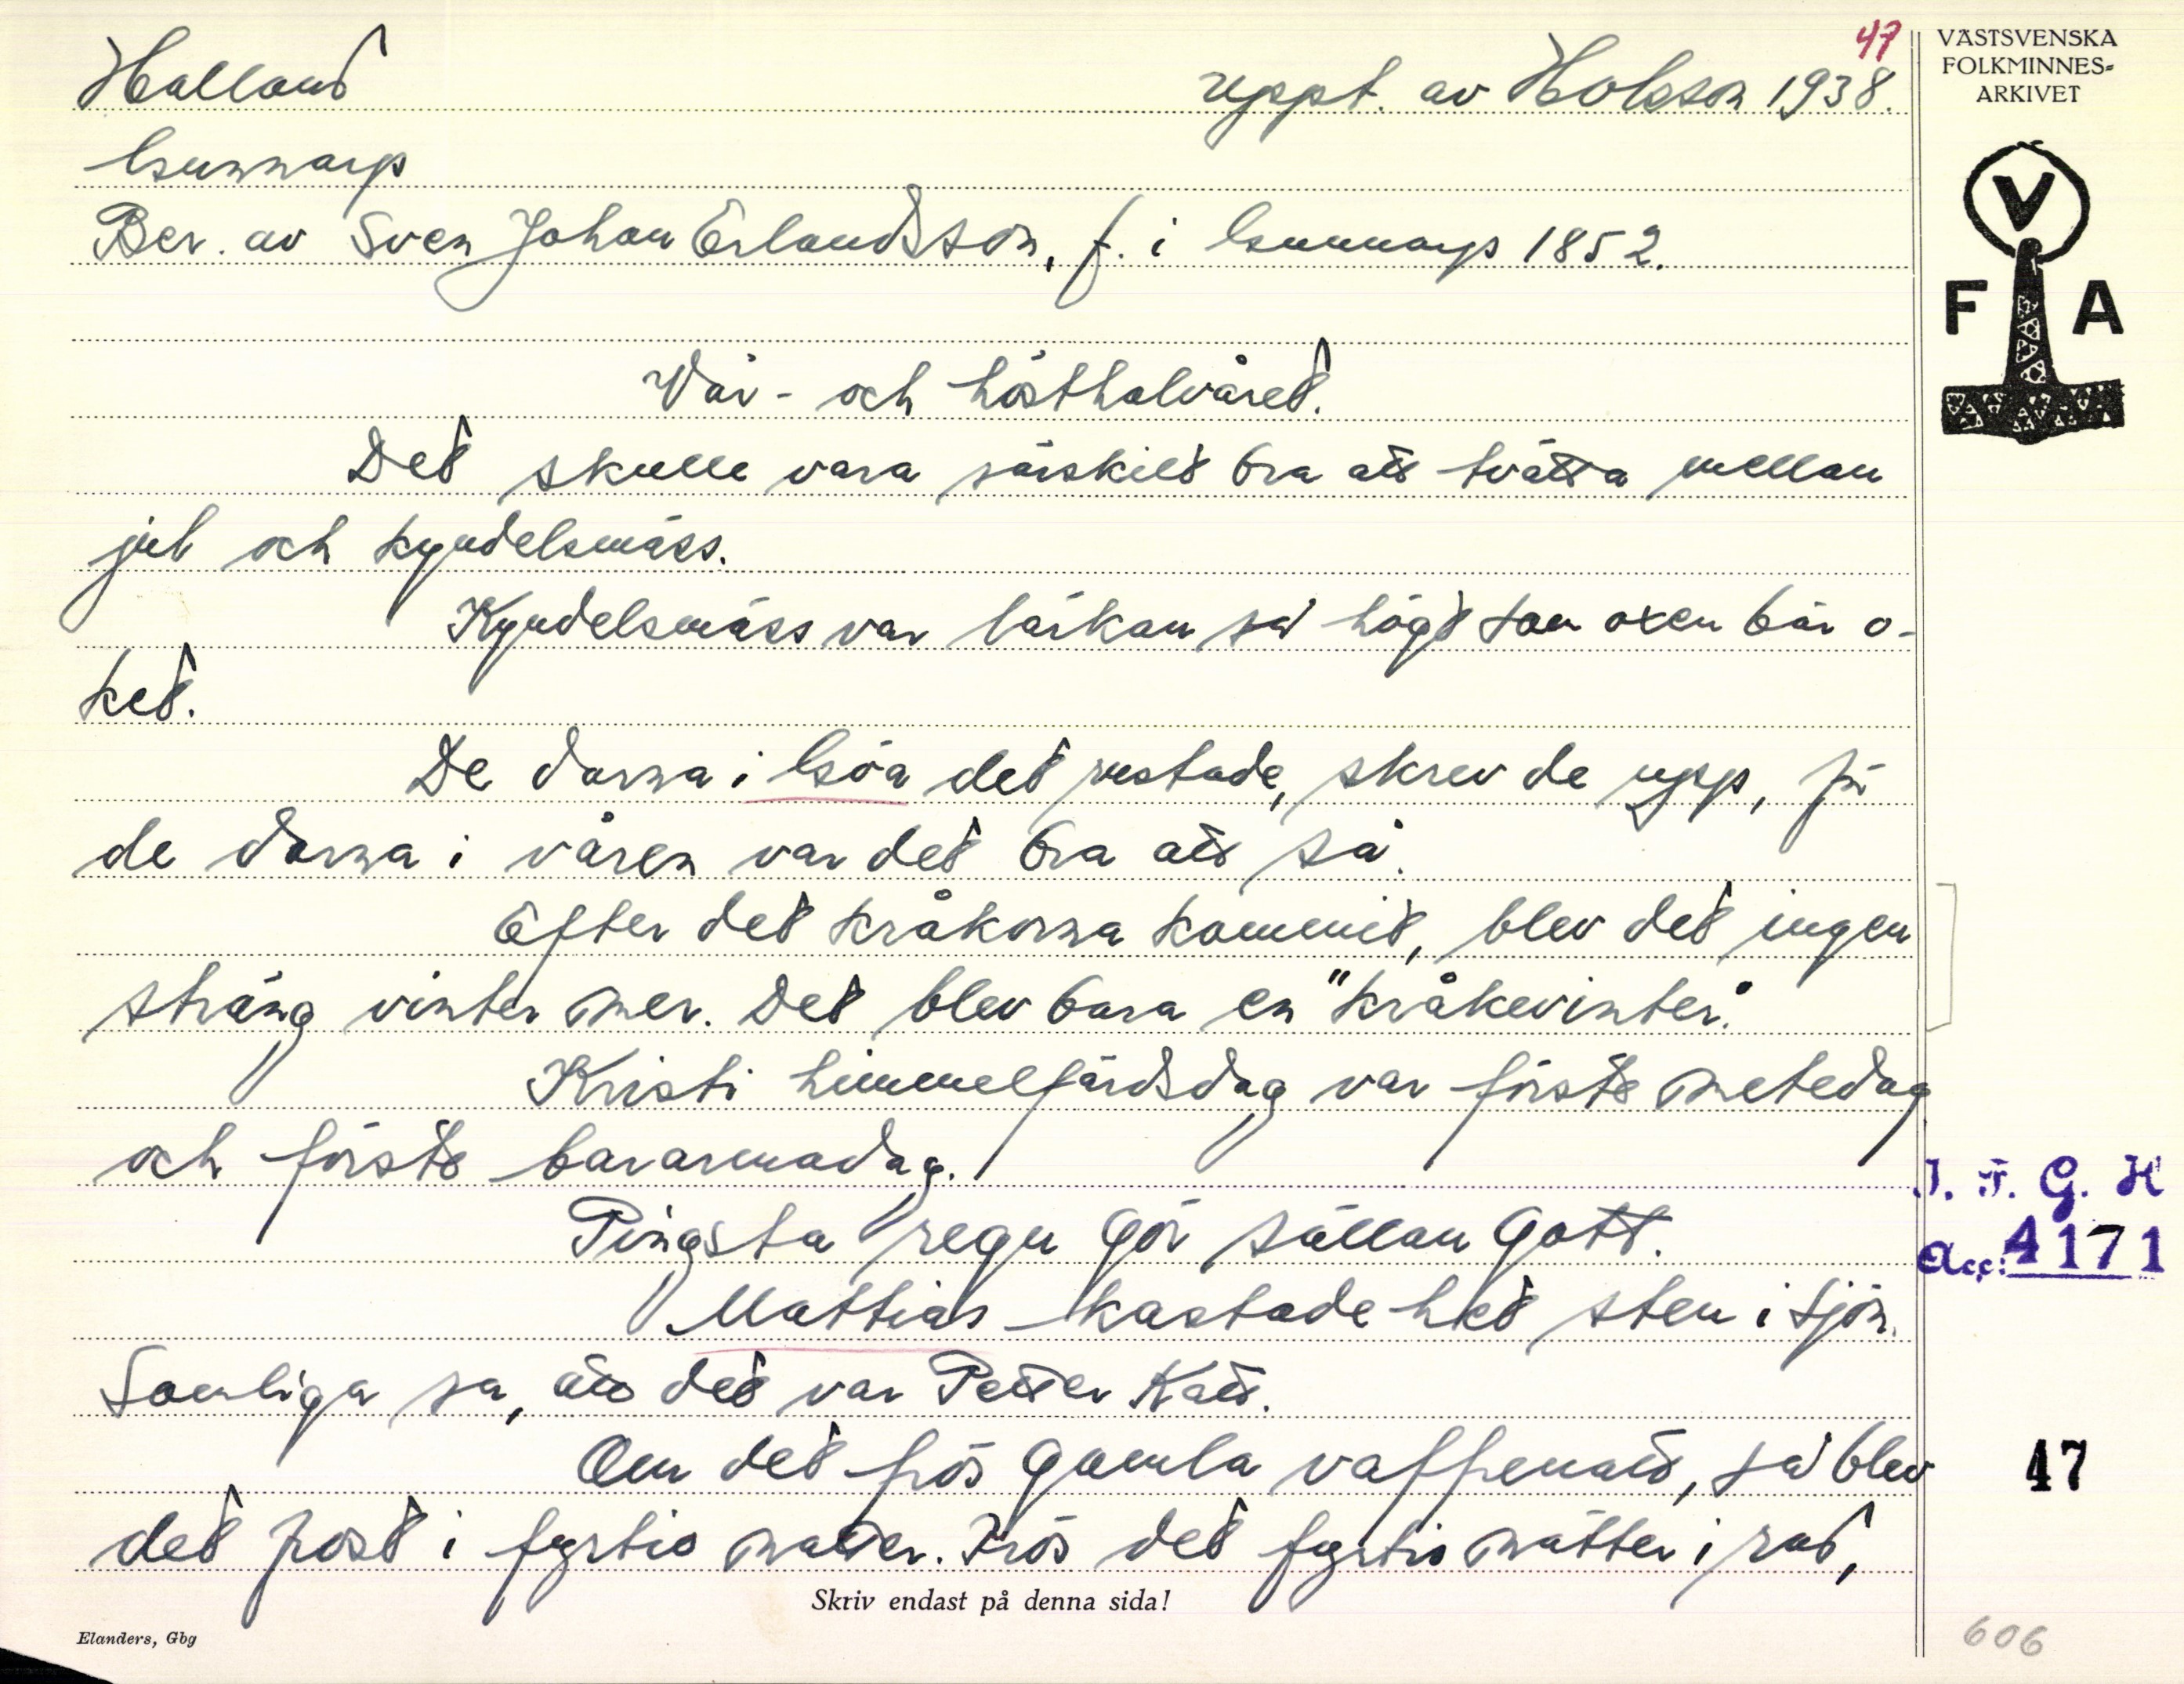 47
Halland
uppt. av Holsson 1938.
Gunnarp
Ber. av Sven Johan Erlandsson, f. i Gunnarp 1852.
Vår- och hösthalvåret.
Det skulle vara särskilt bra att tvätta mellan
jul och kyndelsmäss.
Kyndelsmäss var lärkan så högt som oxen bär o-
ket.
De darna i Göa det rustade, skrev de upp, för
de darna i våren var det bra att så.
Efter det kråkorna kommit, blev det ingen
sträng vinter mer. Det blev bara en "kråkevinter".
Kristi himmelfärdsdag var förste metedag
och förste bararmadag.
Pingsta regn gör sällan gott.
Mattias kastade het sten i sjön.
Somliga sa, att det var Petter Katt.
Om det frös gamla vaffernatt, så blev
det frost i fyrtio nätter. Frös det fyrtio nätter i rad,
Skriv endast på denna sida!
Elanders, Gbg
VÄSTSVENSKA
FOLKMINNES-
ARKIVET
V
F A
I. F. G. H
Acc: 4171
47
606